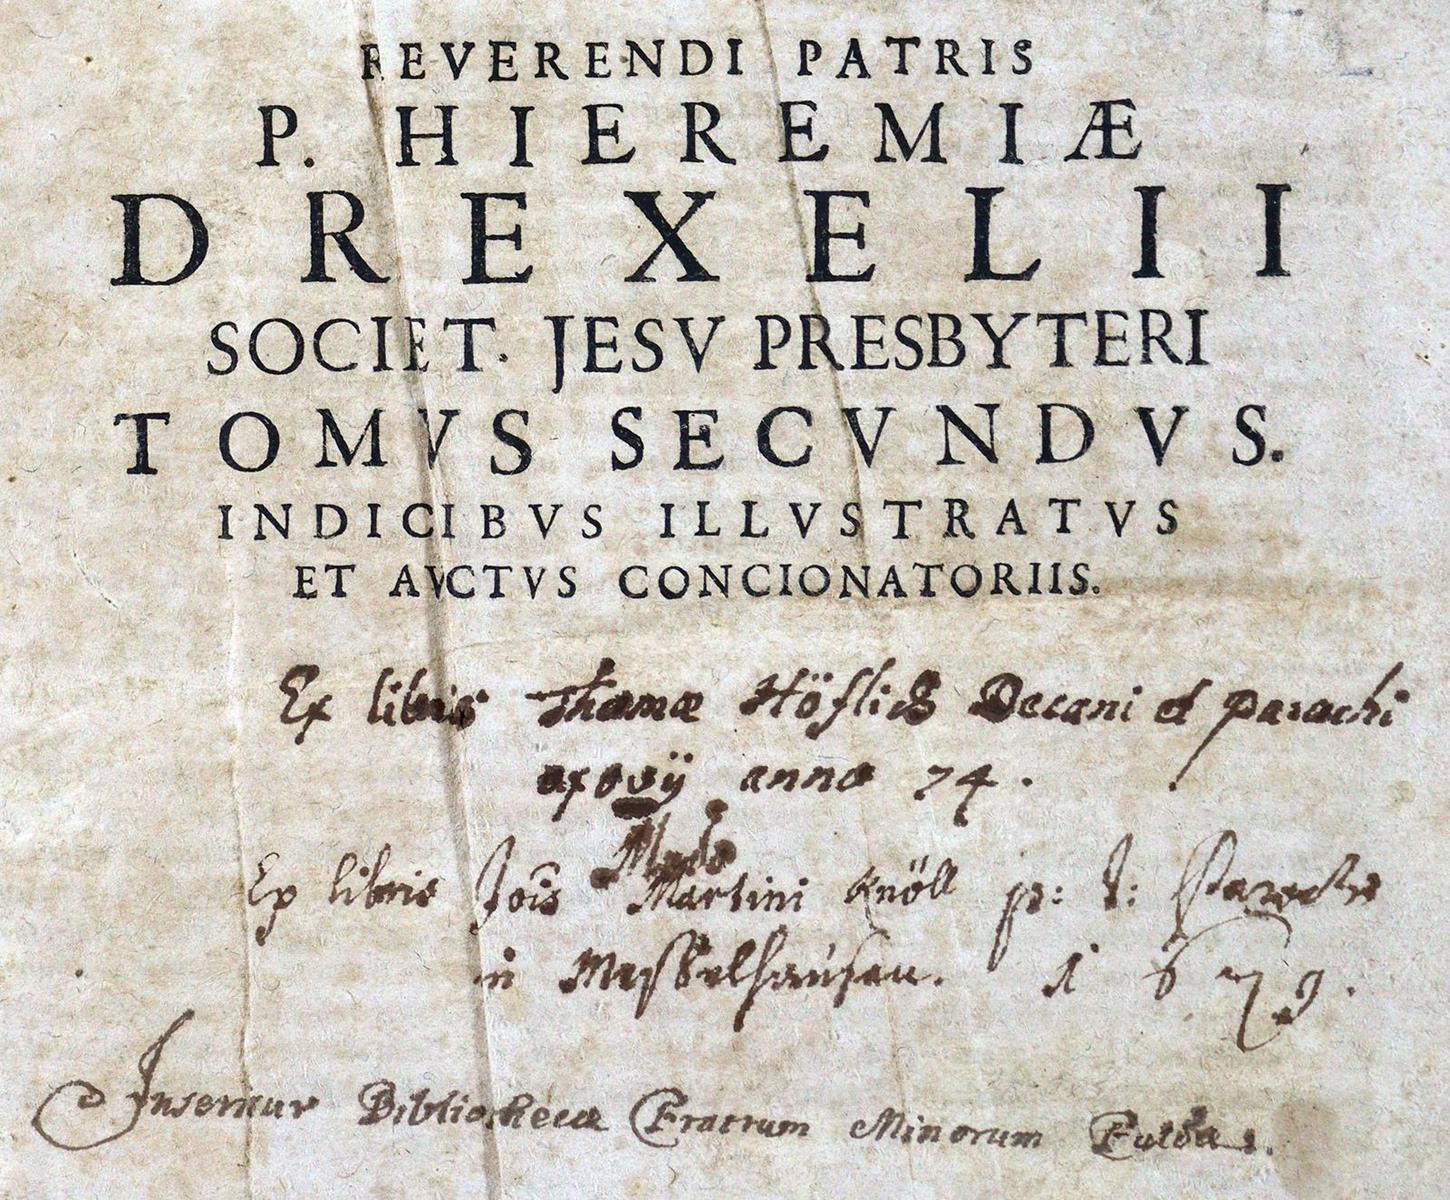 REVERENDI PATRIS
P. HIEREMIÆ
DREXELII
SOCIET. JESV PRESBYTERI
TOMVS SECVNDVS.
INDICIBVS ILLVSTRATVS
ET AVCTVS CONCIONATORIIS.
Ex libris Thomæ Höflich Decani et parachi
anno 74.
Ex libris Jois Martini Knöll p: t: Parochi
in Messelhausen. 1679.
Inserimur Bibliothecæ Fratrum Minorum Fuldæ.